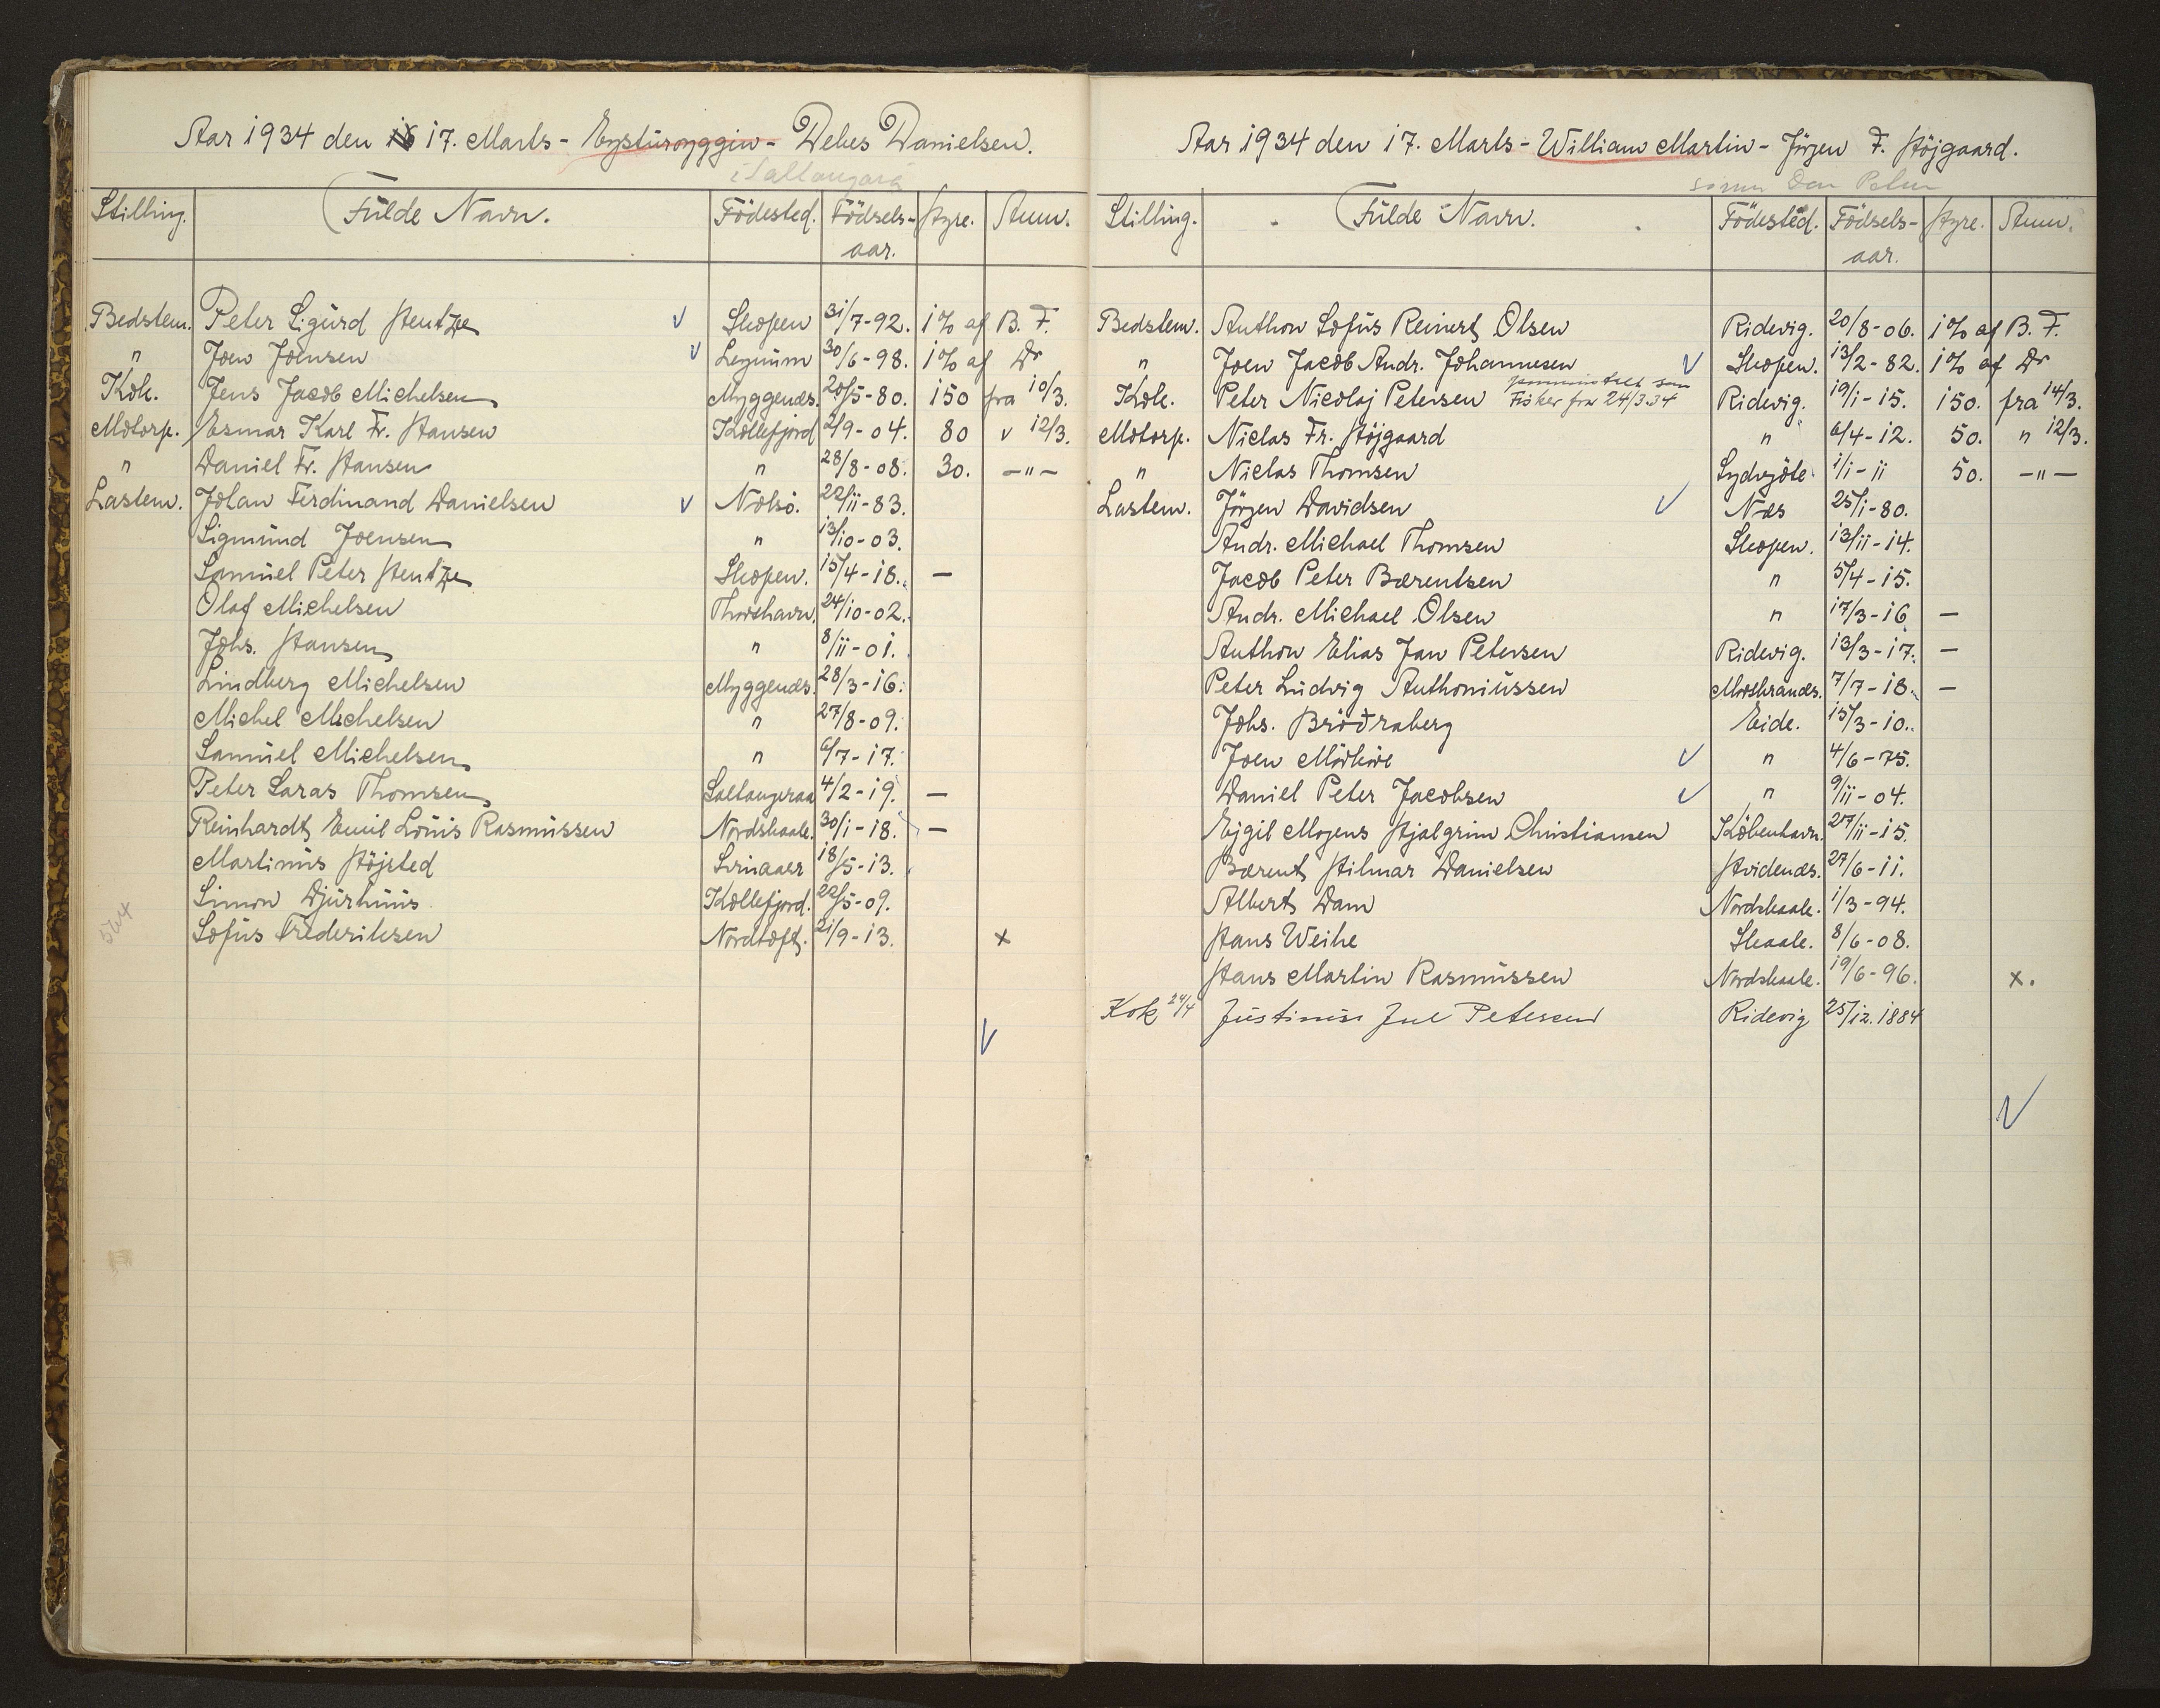 Aar 1934 den 16 17. Marts - Eysturoyggin - Debes Danielsen.
Stilling. Fulde Navn. Födested. Födsels-aar. Hyre. Anm.
Bedstem. Peter Sigurd Hentze √ Skopen 31/7-92. 1% af B. F.
" Joen Joensen √ Leynum 30/6-98. 1% af Dr
Kok. Jens Jacob Michelsen Myggenæs. 20/5-80. 150 fra 10/3.
Motorp. Esmar Karl Fr. Hansen Kollefjord 2/9-04. 80 v 12/3.
" Daniel Fr. Hansen " 28/8-08. 30. -"-
Lastem. Johan Ferdinand Danielsen √ Nolsö. 22/11-83.
Sigmund Joensen " 13/10-03.
Samuel Peter Hentze Skopen. 15/4-18. -
Olaf Michelsen Thorshavn. 24/10-02.
Johs. Hansen " 8/11-01.
Lindberg Michelsen Myggenæs. 28/3-16.
Michel Michelsen " 27/8-09.
Samuel Michelsen " 6/7-17.
Peter Laras Thomsen Saltangeraa 4/2-19. -
Reinhardt Emil Louis Rasmussen Nordskaale. 30/1-18. -
Martinus Höjsted Svinaaer 18/5-13.
Simon Djurhuus Kollefjord. 22/5-09.
564 Sofus Frederiksen Nordtoft. 21/9-13. x
√
Aar 1934 den 17. Marts - William Martin - Jörgen F. Höjgaard.
Stilling. Fulde Navn. Födested. Födsels-aar. Hyre. Anm.
Bedstem. Anthon Sofus Reinert Olsen Ridevig. 20/8-06. 1% af B. F.
" Joen Jacob Andr. Johannesen √ Skopen. 13/2-82. 1% af Dr
Kok. Peter Nicolaj Petersen Fisker fra 24/3.34 Ridevig. 19/1-15. 150. fra 14/3.
Motorp. Niclas Fr. Höjgaard " 6/4-12. 50. " 12/3.
" Niclas Thomsen Sydrgöte 1/1-11 50. -"-
Lastem. Jörgen Davidsen √ Næs 25/1-80.
Andr. Michael Thomsen Skopen. 13/11-14.
Jacob Peter Bærentsen " 5/4-15.
Andr. Michael Olsen " 17/3-16 -
Anthon Elias Jan Petersen Ridevig. 13/3-17. -
Peter Ludvig Anthoniussen Morskranæs. 7/7-18. -
Johs. Bröðraberg Eide. 15/3-10.
Joen Mörköre √ " 4/6-75.
Daniel Peter Jacobsen √ " 9/11-04.
Ejgil Mogens Hjalgrim Christiansen Köbenhavn. 27/11-15.
Bærent Hilmar Danielsen Hvidenæs. 27/6-11.
Albert Dam Nordskaale. 1/3-94.
Hans Weihe Skaale. 8/6-08.
Hans Martin Rasmussen Nordskaale. 19/6-96. x.
Kok 24/4 Justinus Juel Petersen Ridevig 25/12.1884
√